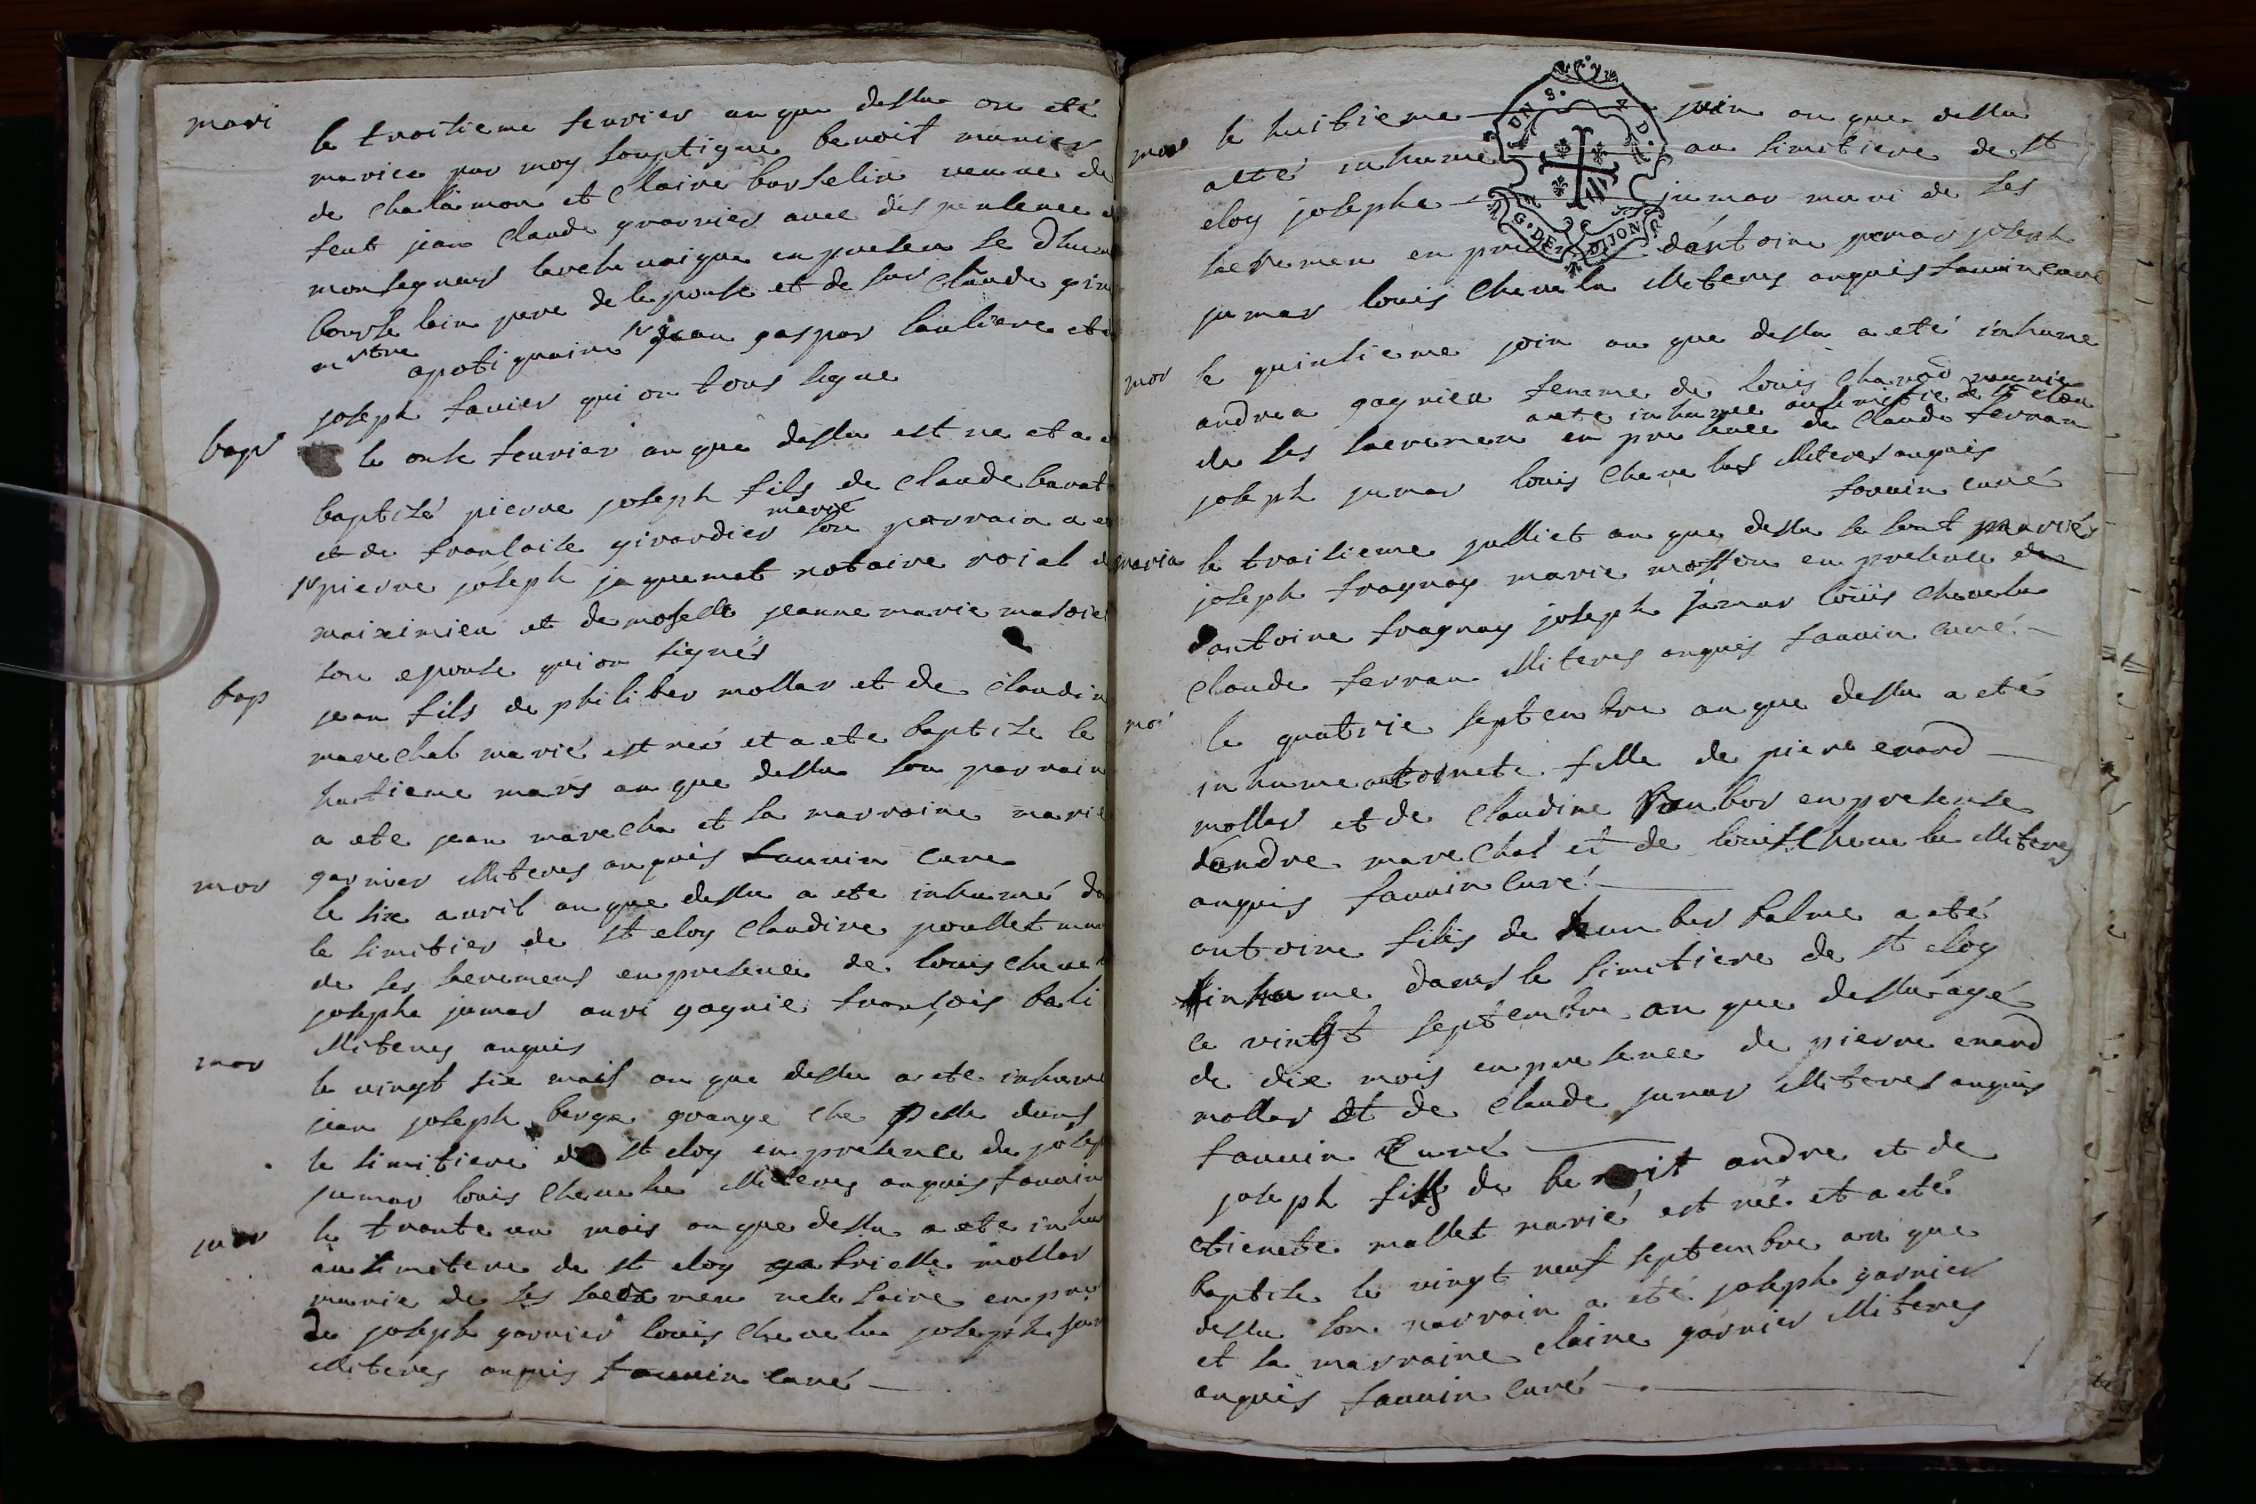 mari
le troisieme feurier an que dessu on eté
mariea par moy souptigne benoit munier
de chalamon et Claire borselin veuve de
feut jean Claude gravrier avec dispenlence
monsegneur larcheuaique en presen le dhu
bourse lain pere de lepouse et de sur Claude gir
mtre apotiquaire sr jean gaspar lauliere et
joseph favier qui on tous signe
bapt
le onse feurier an que dessu est ne et a e
baptisé pierre joseph fils de Claude barat
et de franсaise girardier marié son parrain a e
sr pierre joseph jaquemet notaire roial
maiximieu et demoselle jeanne marie
son epouse qui on signés
bap
jean fils de philiber mollar et de Claudin
marechal marié est neé et a ete baptize le
huitieme mars an que dessu son parrain
a ete jean marecha et la marraine marie
garnier illiteres anquis fauvin cure
mor
le six avril an que dessu a ete inhumé da
le simitier de st eloy Claudine poullet mu
de ses sacremens en presence de louis cheve
josephe jumar gagnie françois bali
illiteres anquis
mor
le vingt six mais an que dessu a ete inhum
jean joseph berge grange che pelle dans
le simitiere de st eloy en presence de josep
jumar louis chevelu illiteres anquis fauvin
mor
le trante un mais an que dessu a ete inhu
au simetere de st eloy gabrielle mollar
munie de ses sacremen nesesaire en pre
de joseph garnier louis chevelu joseph jum
illiteres anquis fauvin curé
G. DE DIJON
mor
le huitieme join an que dessu
aeté inhume au simitiere de st
eloy josephe jumar muni de ses
sacremen en pre dantoine jumar joseph
jumar louis chevelu illiteres anquis fauvin curé
mor
le quinsieme join an que dessu a eté inhume
andrea gagnieu femme de louis munie
aete inhumee au simitie de st eloy
de ses sacremen en presence de Claude ferran
joseph jumar louis chevelus illiteres anquis
fauvin curé
maria
le traisieme julliet an que dessu se sont marié
joseph fragnay marie mosson en presence de
dantoine fragnay joseph jumar louis chevelu
Claude ferran illiteres anquis fauvin curé
mor
le quatrie septembre an que dessu a eté
inhume antoinete fille de piere enard
mollar et de Claudine en presense
dandre marechal et de louis chevelu illiteres
anquis fauvin curé
antoine fils de humber balme a eté
inhume dans le simitiere de st eloy
le vingt septembre an que dessu agé
de dix mois en presence de pierre enard
mollar et de Claude jumar illiteres anquis
fauvin curé
joseph fils de benoit andre et de
etienete mallet marié est neé et a eté
baptise le vingt neuf septembre an que
dessu son parrain a eté joseph garnier
et la marraine claire garnier illiteres
anquis fauvin curé